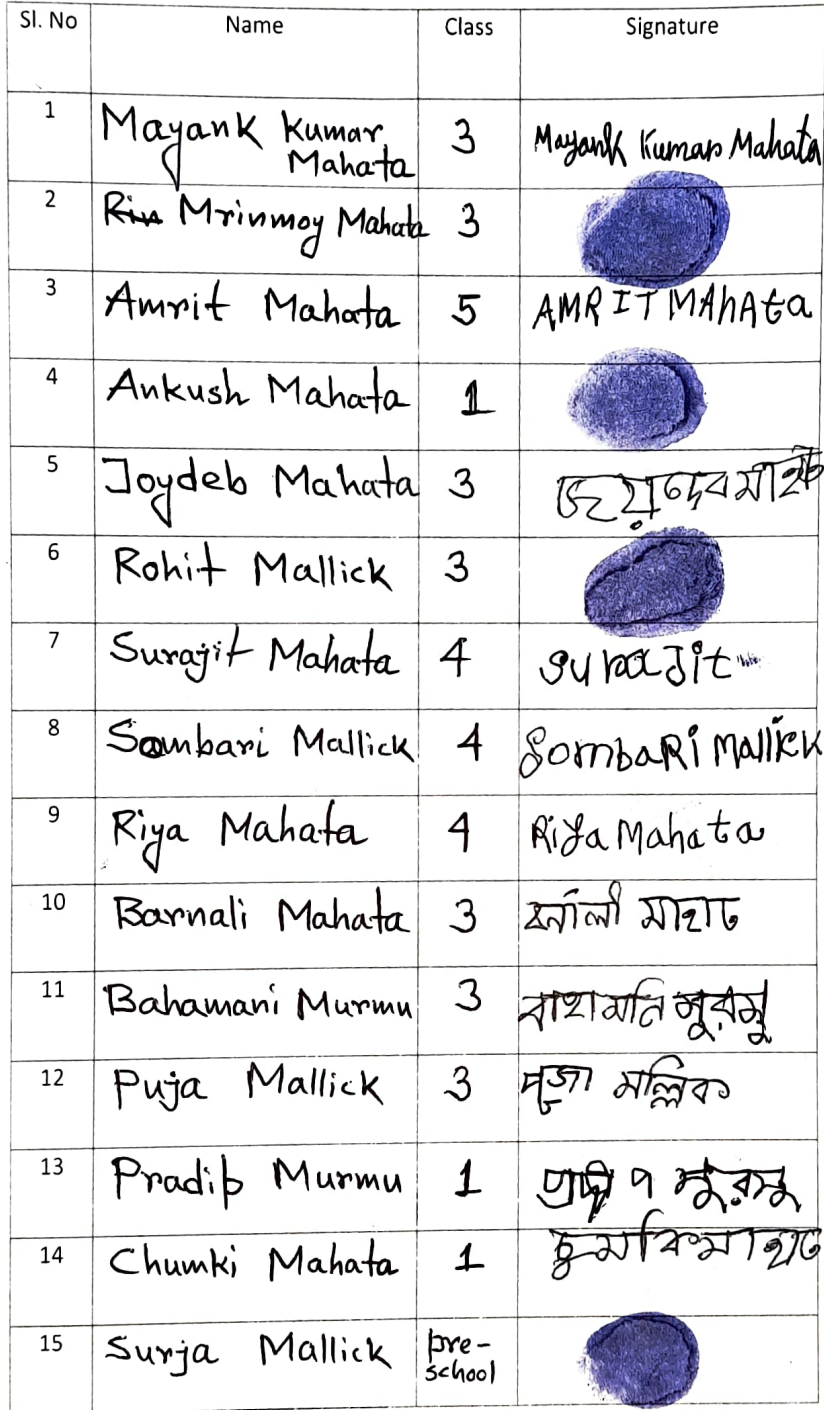 Sl. No Name Class Signature
1 Mayank Kumar Mahata 3 Mayank Kumar Mahata
2 Mrinmoy Mahata 3
3 Amrit Mahata 5 AMRIT MAhAta
4 Ankush Mahata 1
5 Joydeb Mahata 3 জয়দেব মাহত
6 Rohit Mallick 3
7 Surajit Mahata 4 SuraJit
8 Sombari Mallick 4 SombaRi Mallick
9 Riya Mahata 4 Riya Mahata
10 Barnali Mahata 3 বর্নালী মাহাত
11 Bahamani Murmu 3 বাহামনি মুরমু
12 Puja Mallick 3 পূজা মল্লিক
13 Pradip Murmu 1 প্রদীপ মুরমু
14 Chumki Mahata 1 চুমকি মাহাত
15 Surja Mallick pre-
school